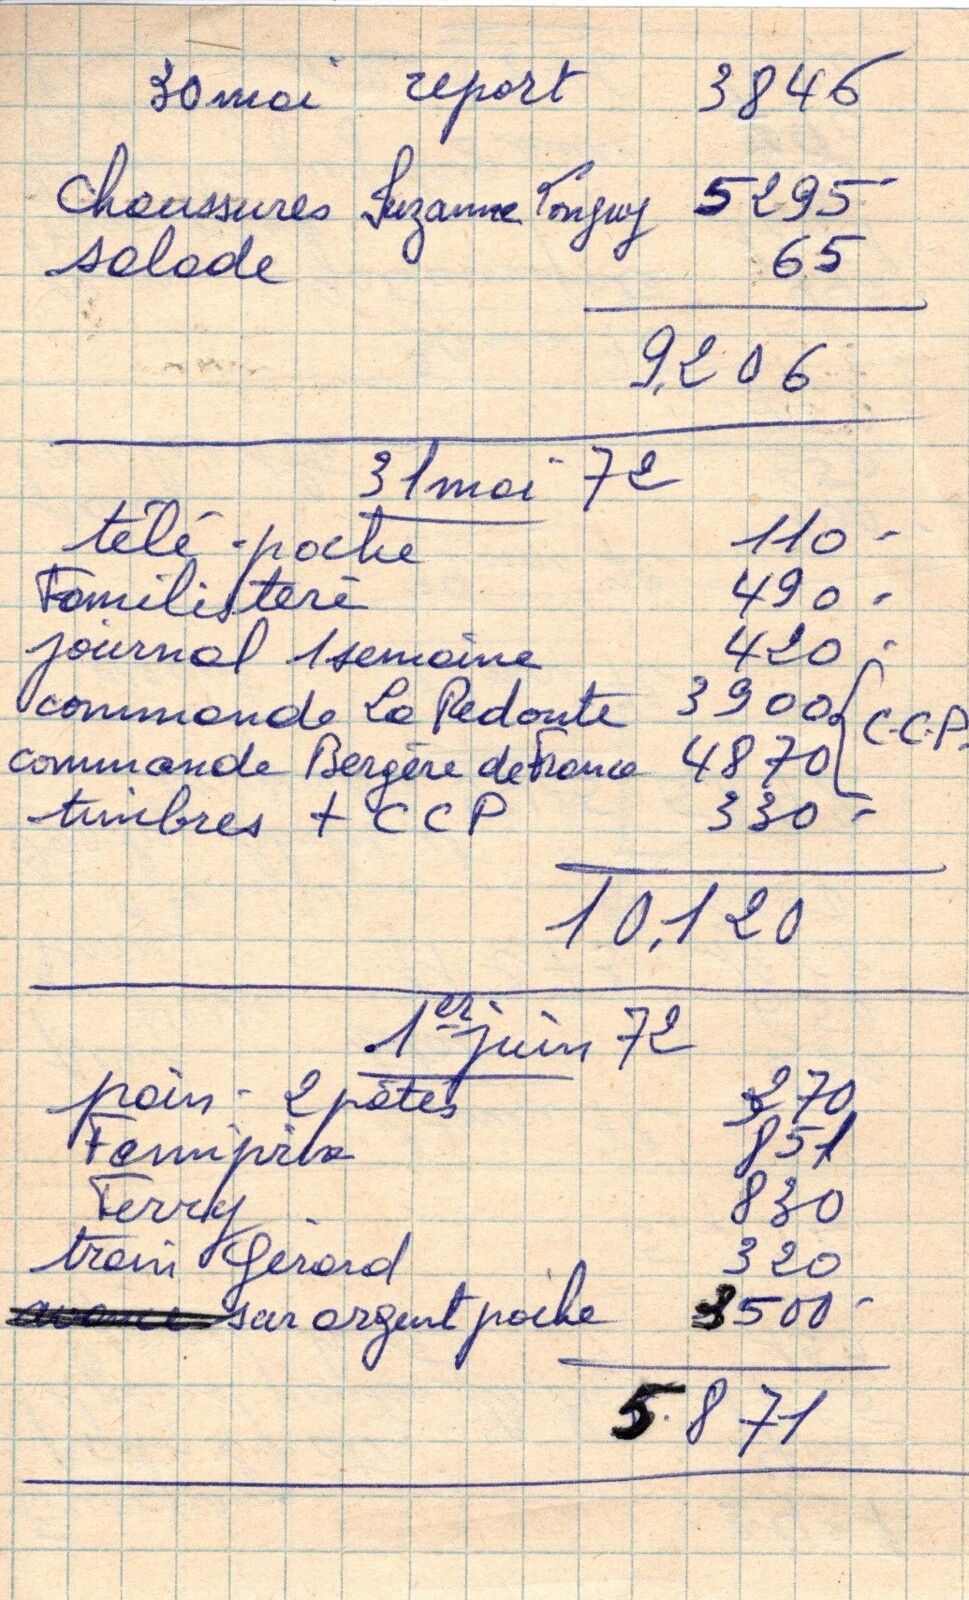 30 mai report 3846
Chaussures Suzanne Tonguy 5295-
salade 65
9.206
31 mai 72
télé-poche 110-
Familistère 490-
journal 1 semaine 420-
commande La Redoute 3900
C.C.P.
commande Bergère de France 4870
timbres + CCP 330-
10.120
1er juin 72
pain - 2 pâtés 370
Famiprix 851
Ferry 830
train Gérard 320
avance sur argent poche 3500-
5.871